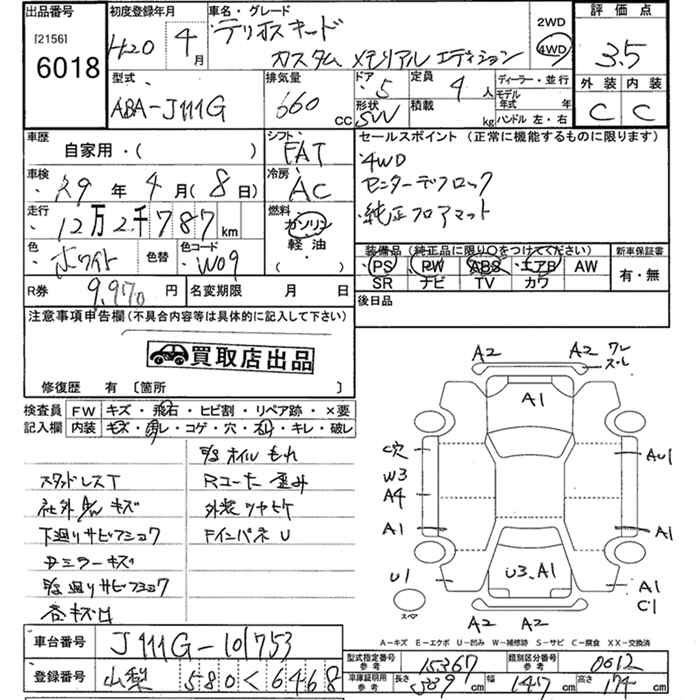 出品番号
[2156]
6018
初度登録年月
H20 4月
車名・グレード
テリオスキード
カスタム メモリアル エディション
2WD
4WD
評価点
3.5
外装 内装
C C
型式
ABA-J111G
排気量
660 CC
ドア
5
形状
SW
定員
4人
積載
kg
ディーラー・並行
モデル
年式 年
ハンドル 左・右
車歴
自家用・( )
シフト
FAT
車検
29年 4月(8日)
冷房
AC
走行
12万2千787km
燃料
ガソリン
軽油
( )
色
ホワイト
色替
色コード
W09
R券
9,970 円
名変期限 月 日
セールスポイント(正常に機能するものに限ります)
・4WD
・センターデフロック
・純正フロアマット
装備品(純正品に限り○をつけてください)
PS PW ABS エアB AW
SR ナビ TV カワ
新車保証書
有・無
後日品
注意事項申告欄(不具合内容等は具体的に記入して下さい)
買取店出品
修復歴 有 〔箇所 〕
検査員
記入欄
FW キズ・飛石・ヒビ割・リペア跡・×要
内装 キズ・汚レ・コゲ・穴・スレ・キレ・破レ
スタッドレスT
社外AW キズ
下廻りサビアショク
ミラーキズ
廻りサビアショク
各キズ凹
オイルもれ
Rコーナー歪み
外装ツヤヒケ
Fインパネ U
A2
A2
ワレ
ズレ
A1
C穴
W3
A4
A1
AU1
A1
U1
U3.A1
A1
C1
スペア
A2 A2
A-キズ E-エクボ U-凹み W-補修跡 S-サビ C-腐食 XX-交換済
車台番号
J111G-101753
登録番号
山梨 580 く 6468
型式指定番号
参考
15367
類別区分番号
参考
0012
車庫証明用
参考
長さ 339cm 幅 147cm 高さ 174cm